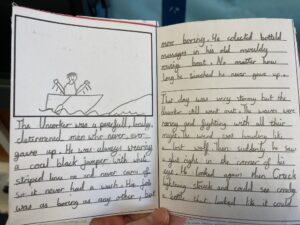 The Uncorker was a peacefull, lonely,
determined man who never, ever
gave up. He was always wearing
a coal black jumper with white
striped line and never came of
so it never had a wash. His job
was as boring as any other, but
more boring. He colected bottled
messages in his old mouldy
rowing boat. No matter how
long he searched he never gave up.
This day was very stormy but the
Uncorker still went out. The waves were
and fighting with all their
might. The wind was howling like
a lost wolf. Then suddenly he saw
a glint right in the corner of his
eye. He looked again then Crack
lightning struck and could see
a bottle that looked like it could